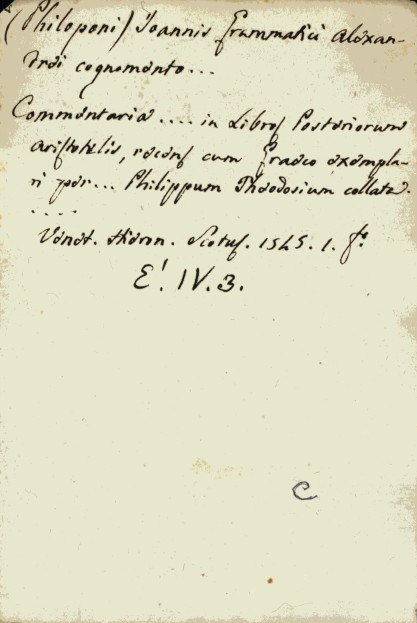 (Philoponi) Joannis Grammatici Alexan-
drei cognomento...
Commentaria .... in Libros Posteriorum
Aristotelis, recens cum Graeco exempla-
ri per... Philippum Theodosium collata.
....
Venet. Hieron. Scotus. 1545. 1. f°.
E'. IV. 3.
C